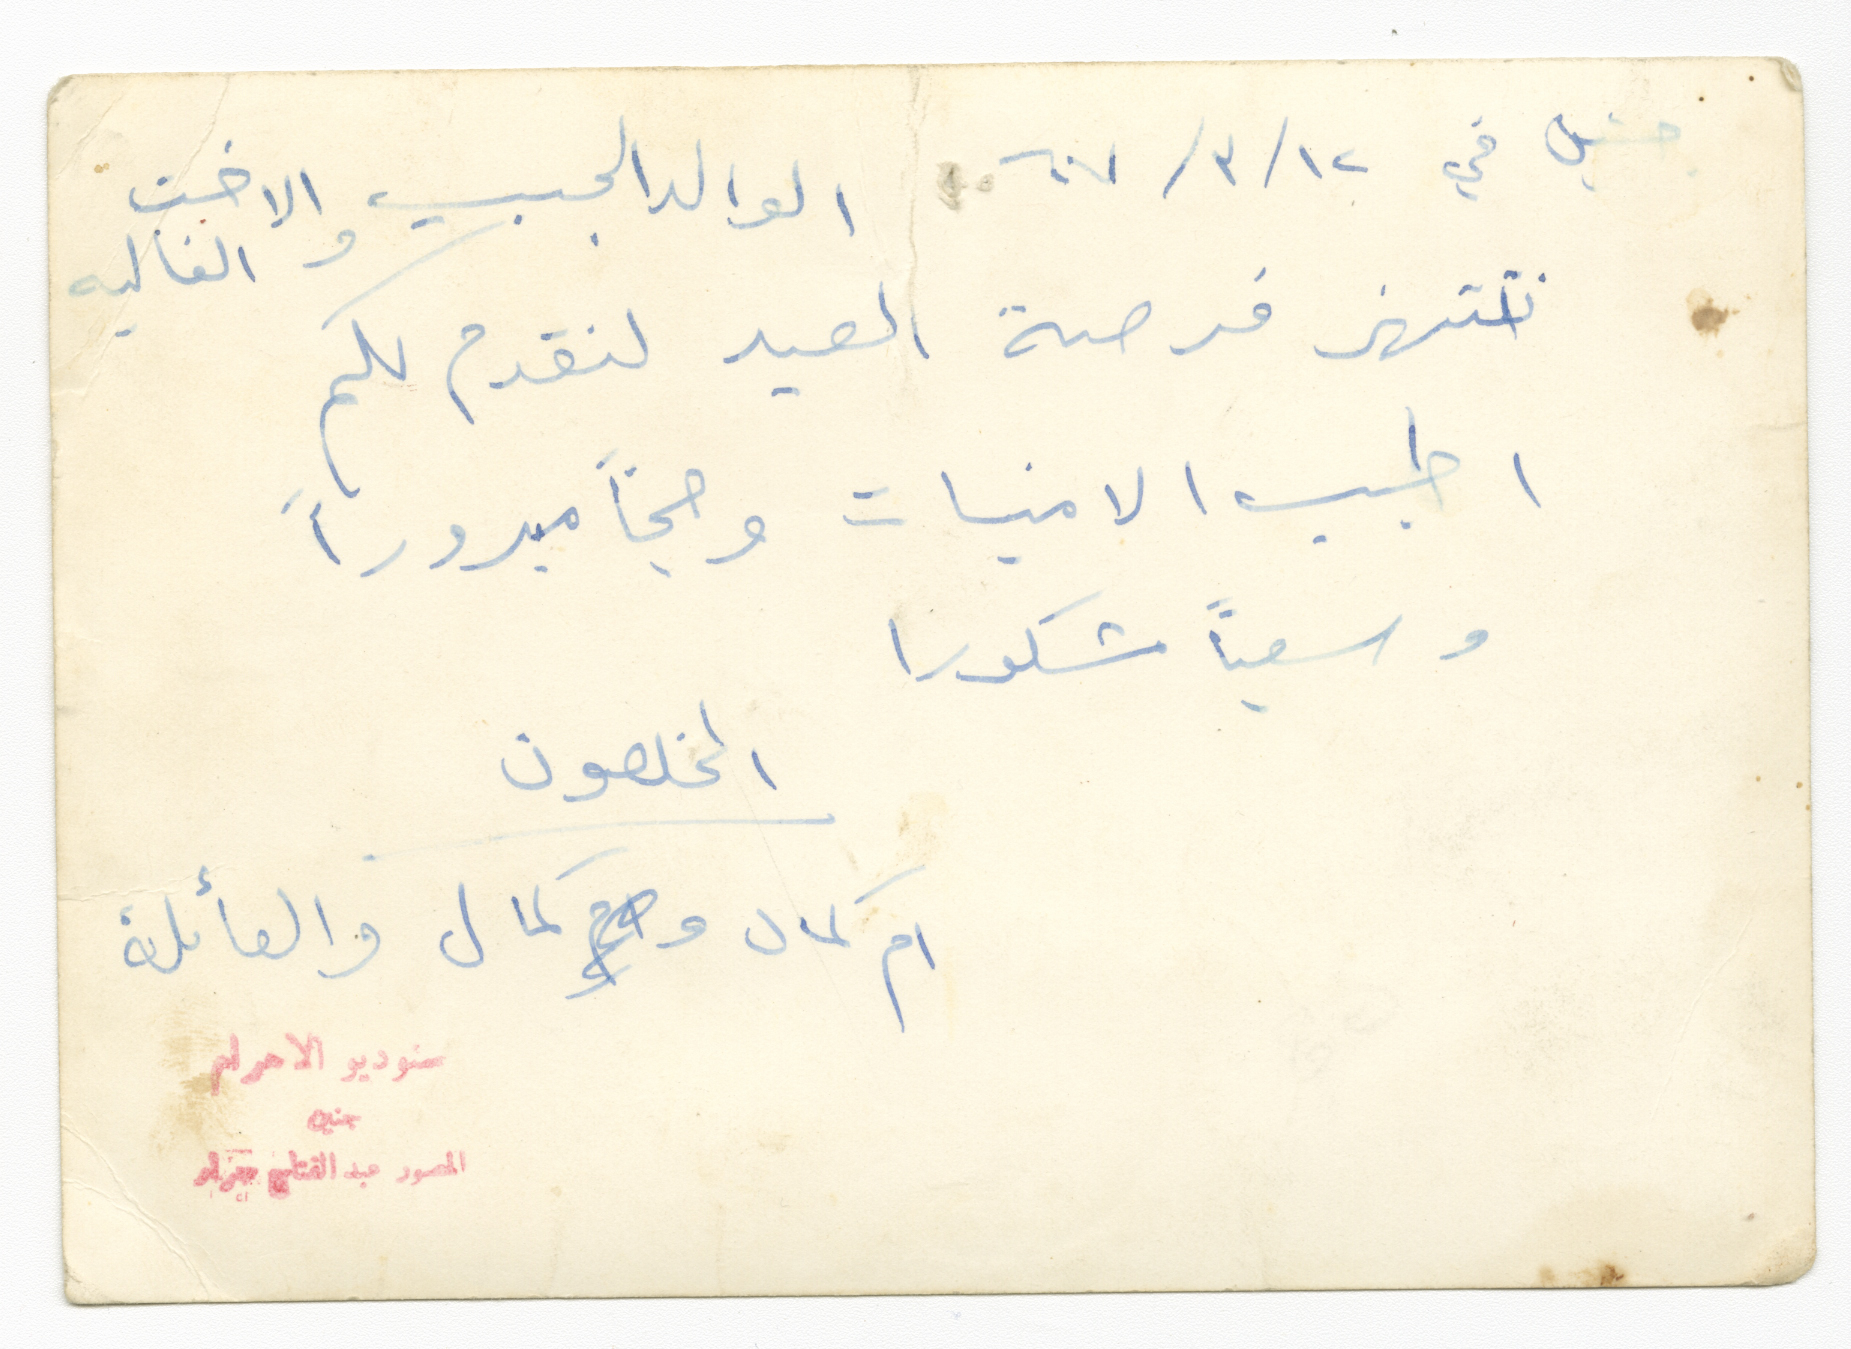 جنين في ١٢/٣/٦٧
الوالد الحبيب والاخت الغاليه
ننتهز فرصة العيد لنقدم لكم
اطيب الامنيات وحجاً مبروراً
وسعياً مشكورا
المخلصون
ام كمال و كمال والعائلة
ستوديو الاهرام
جنين
المصور عبد الفتاح